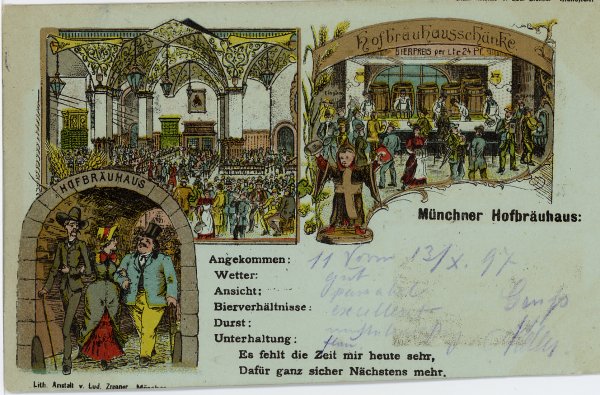 Hofbräuhausschänke
BIERPREIS per Ltr 24 Pf.
HOFBRÄUHAUS
Münchner Hofbräuhaus:
Angekommen: 11 Vorm 13/X. 97
Wetter: gut
Ansicht:
Bierverhältnisse: excellent
Durst:
Unterhaltung:
Gruß
Es fehlt die Zeit mir heute sehr,
Dafür ganz sicher Nächstens mehr.
Lith. Anstalt v. Lud. Zrenner München